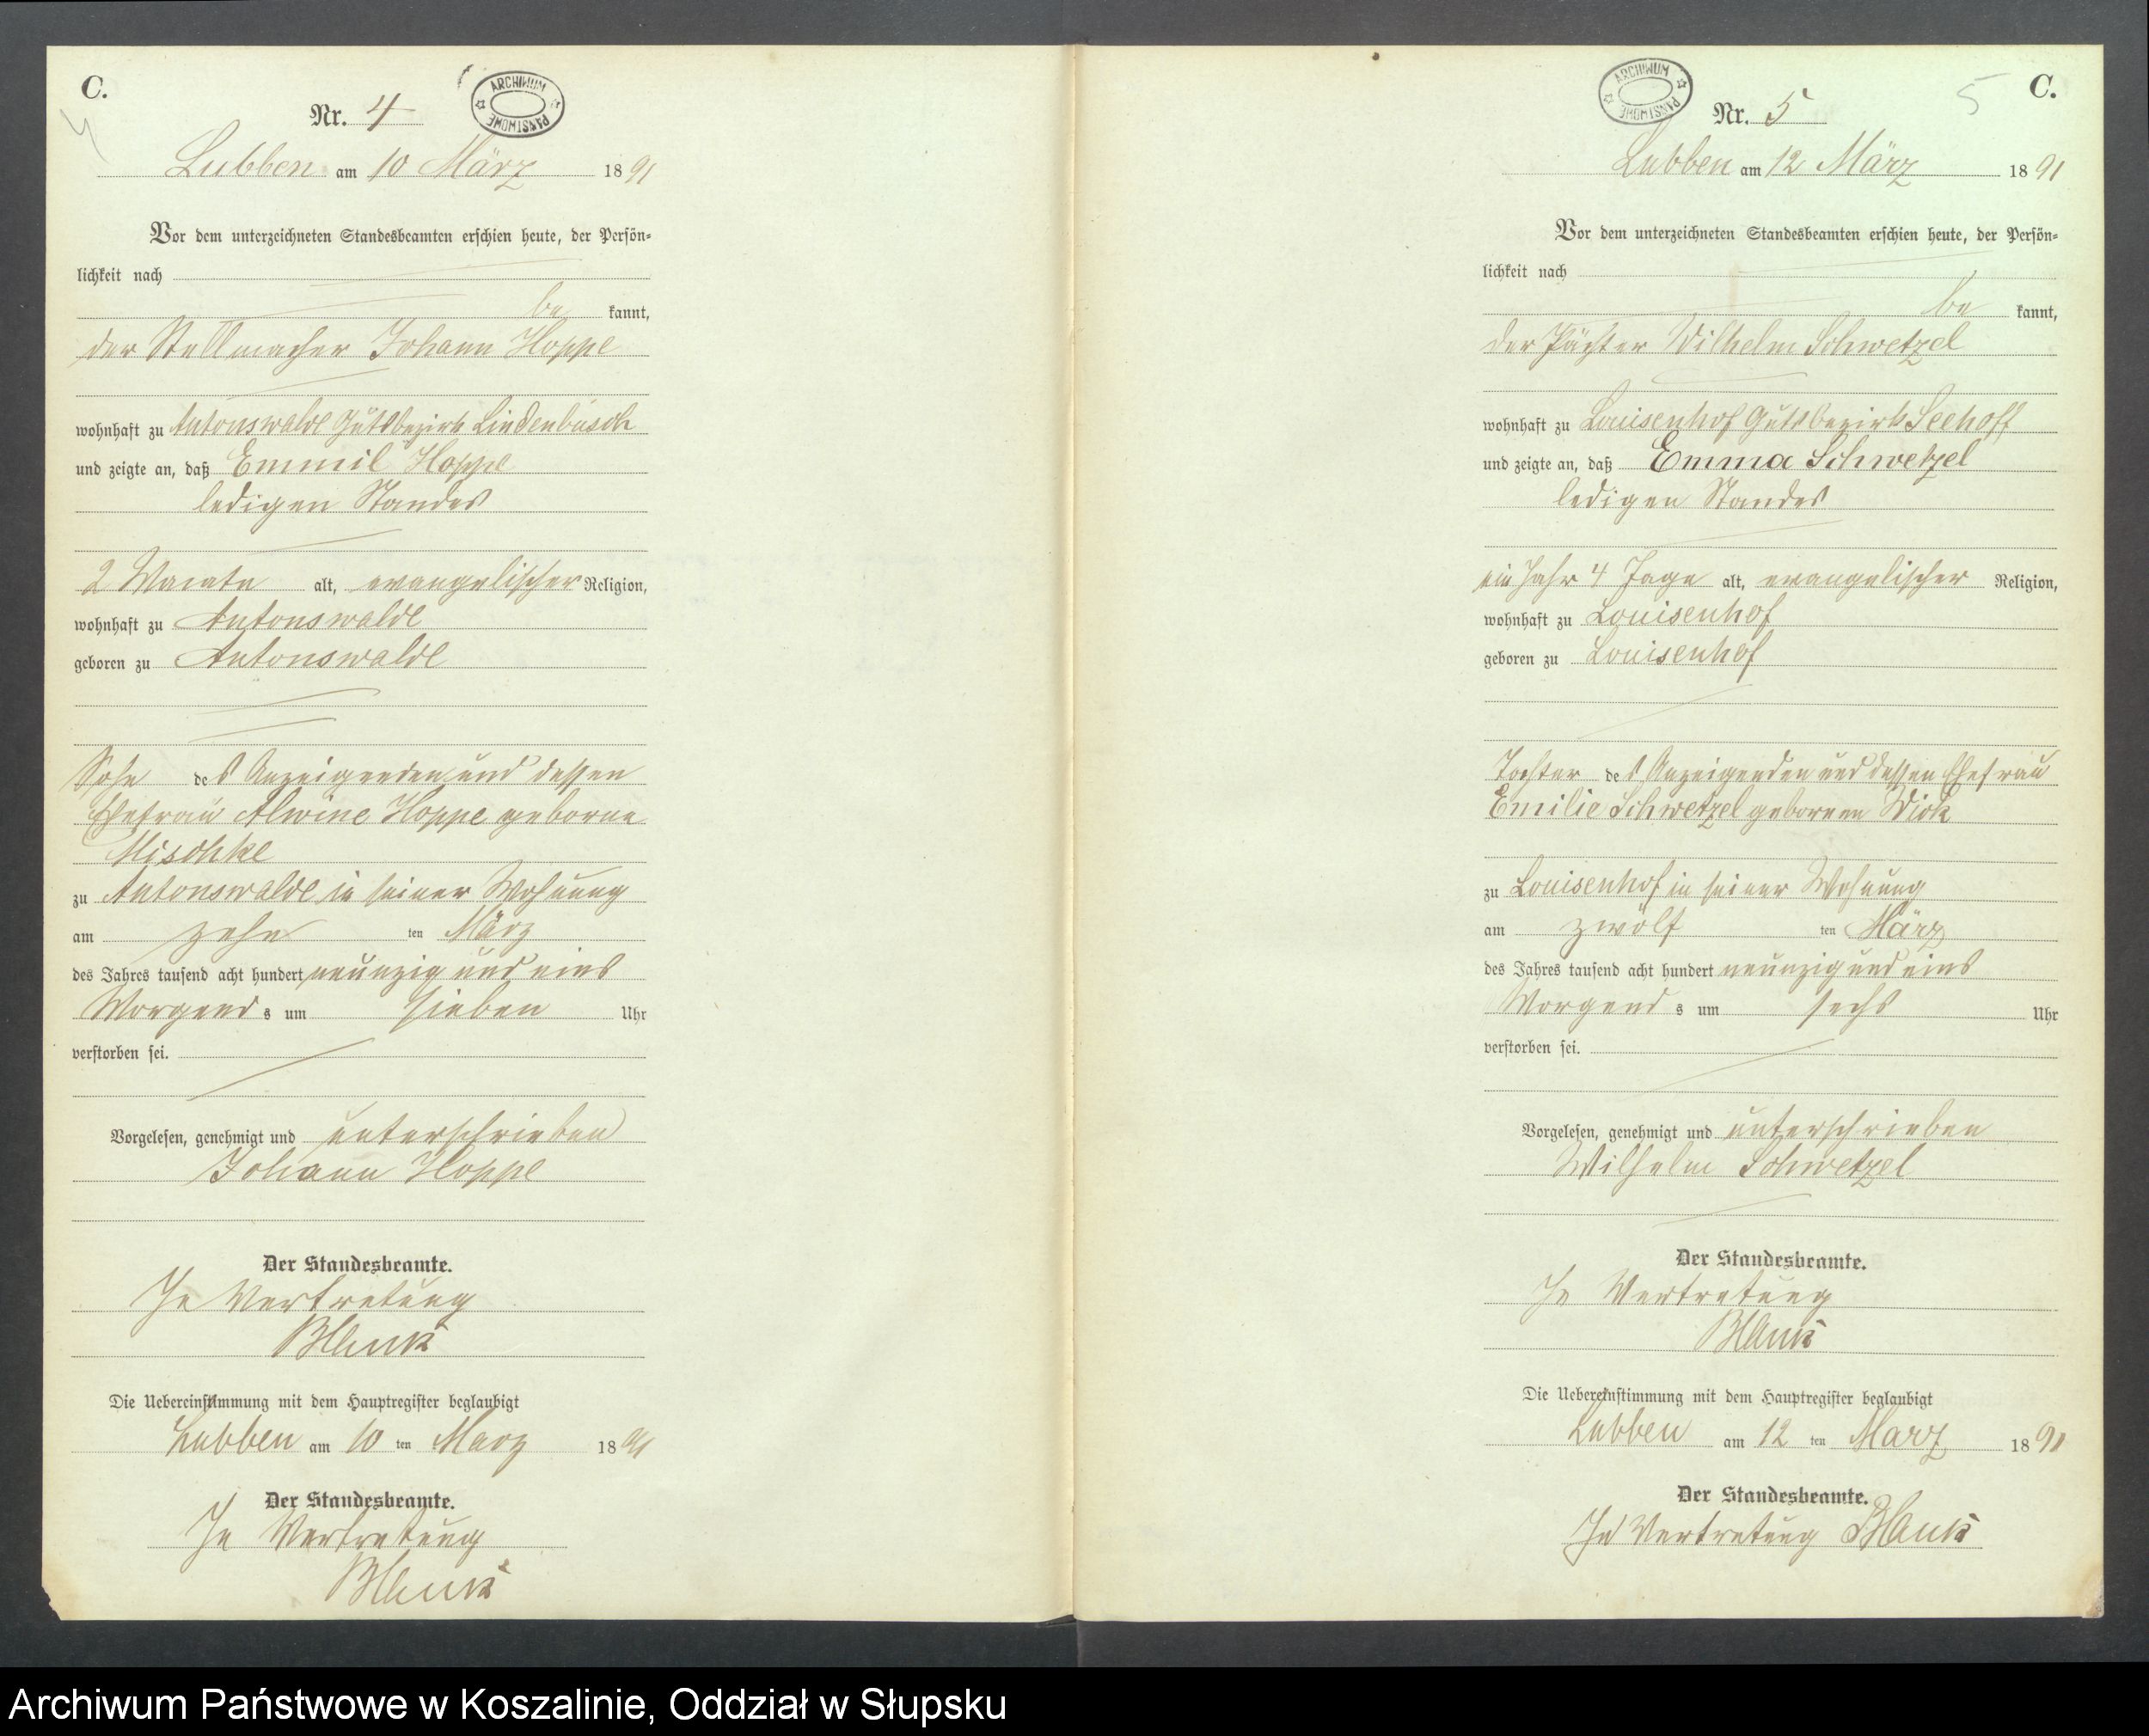 C.
4
Nr. 4
ARCHIWUM PAŃSTWOWE
Lubben am 10 März 1891
Vor dem unterzeichneten Standesbeamten erschien heute, der Persön-
lichkeit nach
be kannt,
der Stellmacher Johann Hoppe
wohnhaft zu Antonswalde Gutsbezirk Lindenbusch
und zeigte an, daß Emmil Hoppe
ledigen Standes
2 Monate alt, evangelischer Religion,
wohnhaft zu Antonswalde
geboren zu Antonswalde
Sohn des Anzeigenden und dessen
Ehefrau Alwine Hoppe geborne
Mischke
zu Antonswalde in seiner Wohnung
am zehn ten März
des Jahres tausend acht hundert neunzig und eins
Morgends um sieben Uhr
verstorben sei.
Vorgelesen, genehmigt und unterschrieben
Johann Hoppe
Der Standesbeamte.
In Vertretung
Blank
Die Uebereinstimmung mit dem Hauptregister beglaubigt
Lubben am 10 ten März 1891
Der Standesbeamte.
In Vertretung
Blank
C.
5
Nr. 5
ARCHIWUM PAŃSTWOWE
Lubben am 12 März 1891
Vor dem unterzeichneten Standesbeamten erschien heute, der Persön-
lichkeit nach
be kannt,
der Pächter Wilhelm Schwetzel
wohnhaft zu Louisenhof Gutsbezirk Seehoff
und zeigte an, daß Emma Schwetzel
ledigen Standes
ein Jahr 4 Tage alt, evangelischer Religion,
wohnhaft zu Louisenhof
geboren zu Louisenhof
Tochter des Anzeigenden und dessen Ehefrau
Emilie Schwetzel geboren Dirk
zu Louisenhof in seiner Wohnung
am zwölf ten März
des Jahres tausend acht hundert neunzig und eins
Morgends um sechs Uhr
verstorben sei.
Vorgelesen, genehmigt und unterschrieben
Wilhelm Schwetzel
Der Standesbeamte.
In Vertretung
Blank
Die Uebereinstimmung mit dem Hauptregister beglaubigt
Lubben am 12 ten März 1891
Der Standesbeamte.
In Vertretung Blank
Archiwum Państwowe w Koszalinie, Oddział w Słupsku